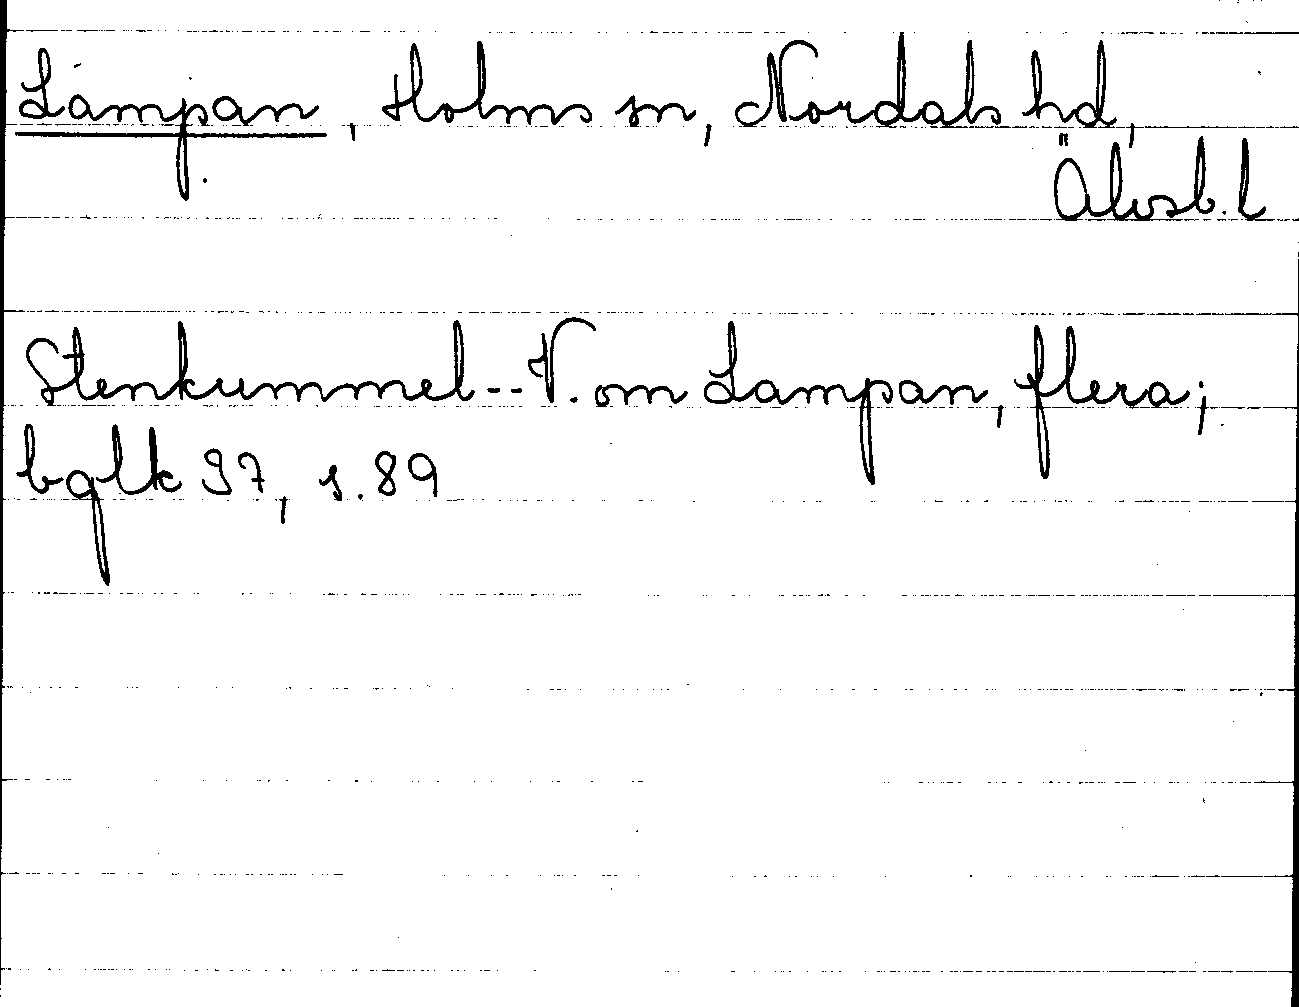 Lampan, Holms sn, Nordals hd,
Älvsb. l
Stenkummel -- V. om Lampan, flera;
bglk 97, s. 89